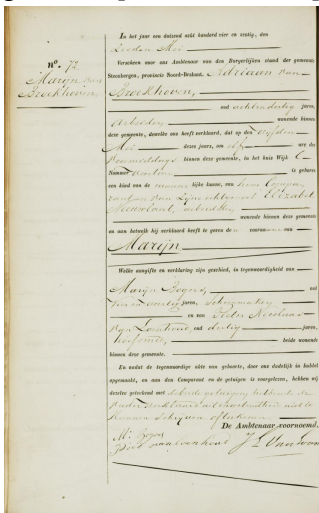 nº. 72.
Marijn van
Broekhoven.
In het jaar een duizend acht honderd vier en zestig, den
Zesden Mei
Verscheen voor ons Ambtenaar van den Burgerlijken stand der gemeente
Steenbergen, provincie Noord-Braband, Adriaan van
Broekhoven,
oud achtendertig jaren,
arbeider, wonende binnen
deze gemeente, dewelke ons heeft verklaard, dat op den vijfden
Mei dezes jaars, om elf ure des
voormiddags binnen deze gemeente, in het huis Wijk
Nummer is geboren
een kind van de mannelijke kunne, van hem Compa-
rant en van zijne echtgenoot Elizabet
arbeidster
wonende binnen deze gemeente
en aan hetwelk hij verklaard heeft te geven den voornaam van
Marijn
Welke aangifte en verklaring zijn geschied, in tegenwoordigheid van
Marijn Bogers, oud
jaren,
en van Pieter
van oud dertig jaren,
beide wonende
binnen deze gemeente.
En nadat de tegenwoordige akte van geboorte, door ons dadelijk in dubbel
opgemaakt, en aan den Comparant en de getuigen is voorgelezen, hebben wij
dezelve geteekend met de getuigen hebbende de
Vader verklaard uit onkunde niet te
kunnen schrijven of teekenen
De Ambtenaar voornoemd,
M: Bogers
Piet van